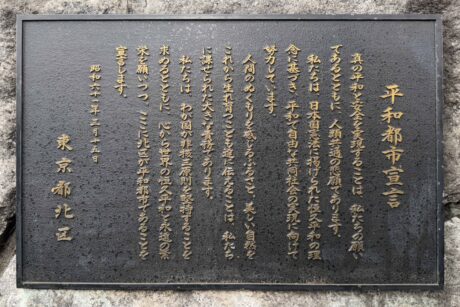 平和都市宣言
真の平和と安全を実現することは、私たちの願い
であるとともに、人類共通の悲願であります。
私たちは、日本国憲法に掲げられた恒久平和の理
念に基づき、平和で自由な共同社会の実現に向けて
努力しています。
人間のぬくもりを感じるふるさと、美しい自然を
これから生れ育つこどもたちに伝えることは、私たち
に課せられた大きな責務であります。
私たちは、わが国が非核三原則を堅持することを
求めるとともに、心から世界の恒久平和と永遠の繁
栄を願いつつ、ここに北区が平和都市であることを
宣言します。
昭和六十一年三月十五日
東京都北区